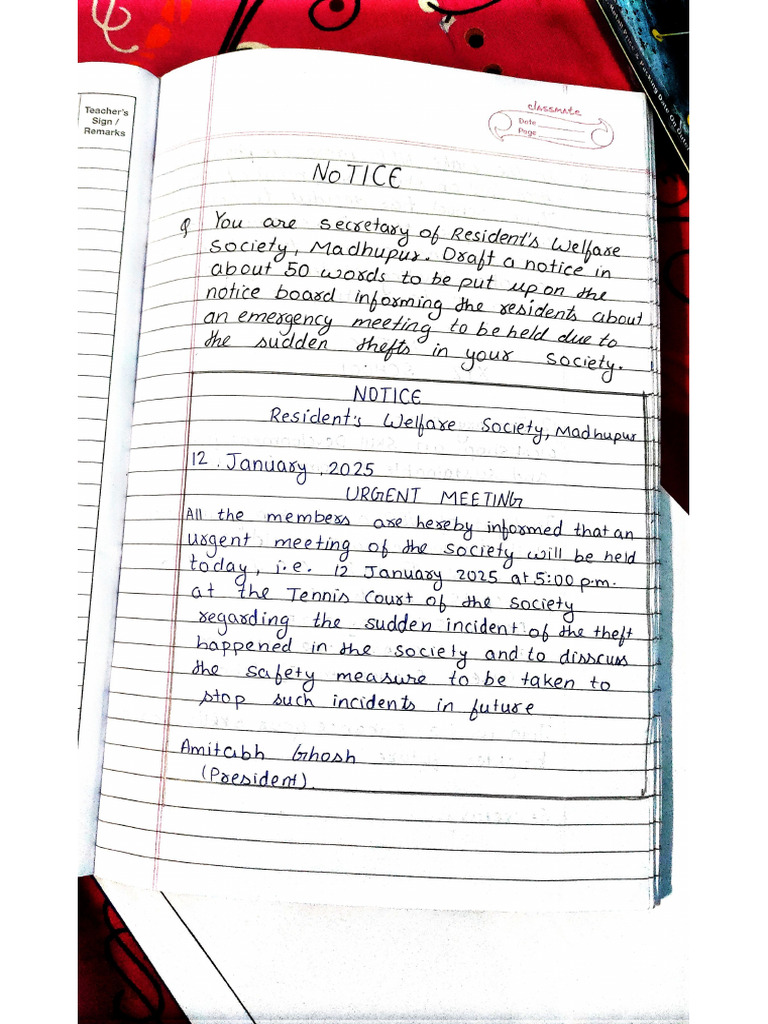 Teacher's
Sign /
Remarks
classmate
Date
Page
NOTICE
Q You are secretary of Resident's Welfare
Society, Madhupur. Draft a notice in
about 50 words to be put up on the
notice board informing the residents about
an emergency meeting to be held due to
the sudden thefts in your society.
NOTICE
Resident's Welfare Society, Madhupur
12 January, 2025
URGENT MEETING
All the members are hereby informed that an
urgent meeting of the society will be held
today, i.e. 12 January 2025 at 5:00 p.m.
at the Tennis Court of the society
regarding the sudden incident of the theft
happened in the society and to disscuss
the safety measure to be taken to
stop such incidents in future
Amitabh Ghosh
(President).